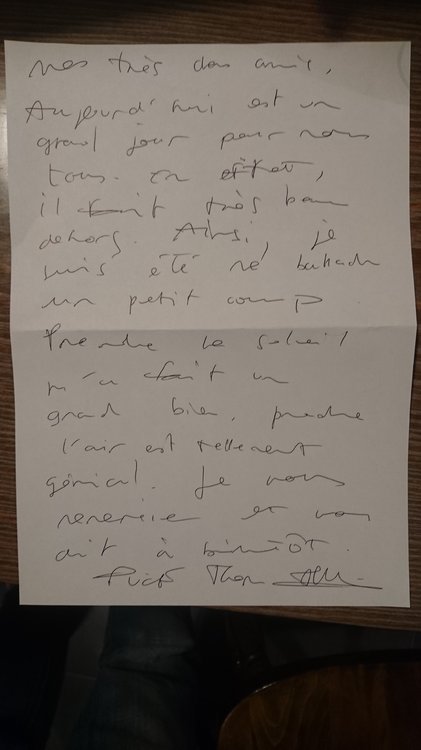 Mes très chers amis,
Aujourd'hui est un
grand jour pour nous
tous. En effet,
il fait très beau
dehors. Ainsi, je
suis été me balader
un petit coup
Prendre le soleil
m'a fait un
grand bien, prendre
l'air est tellement
génial. Je vous
remercie et vous
dit à bientôt.